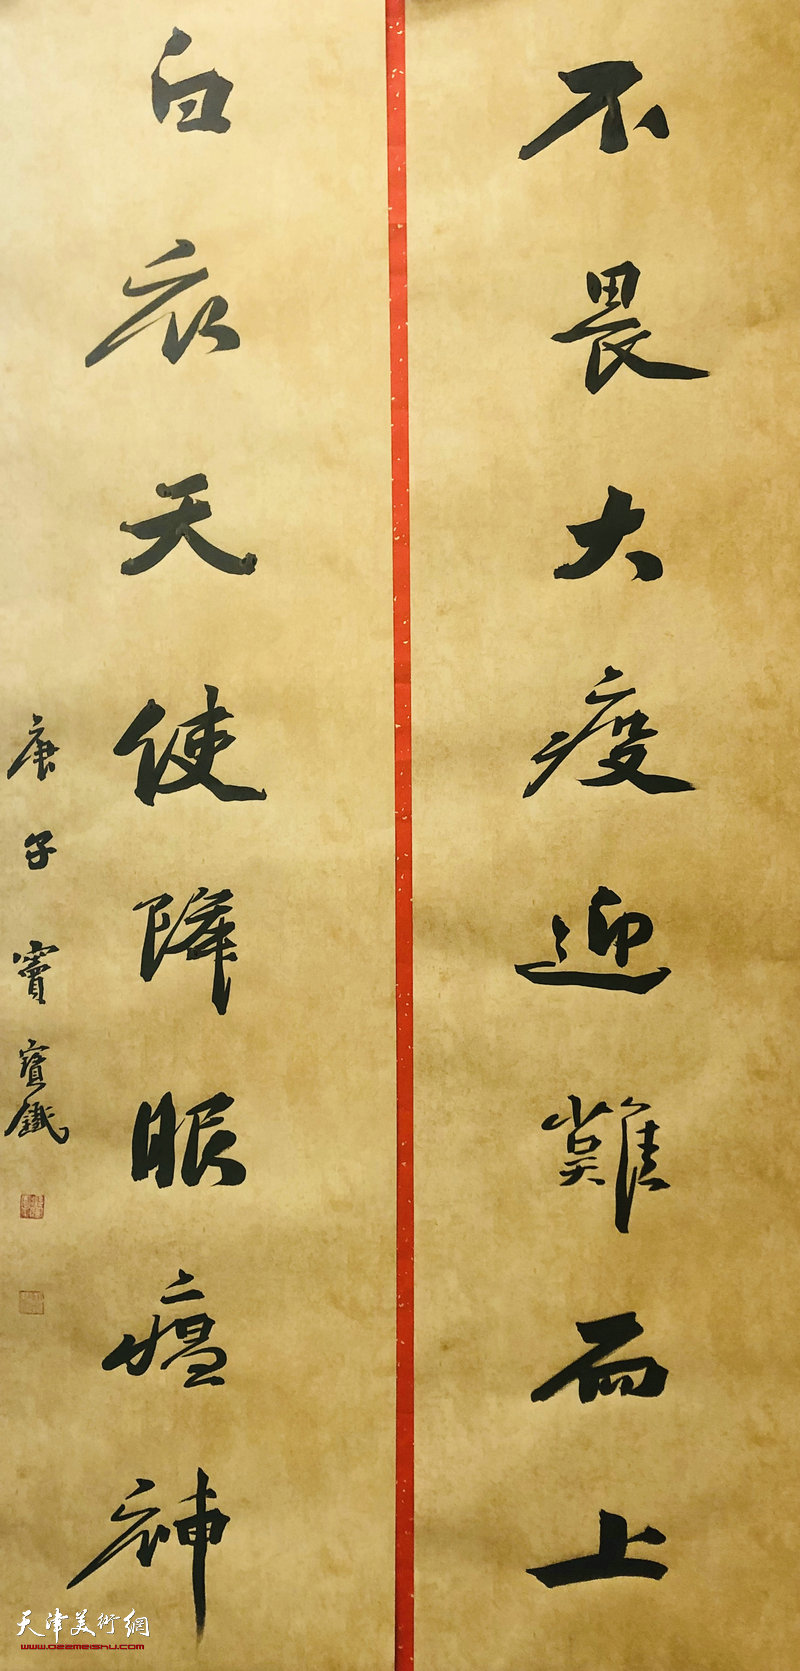 不畏大疫迎難而上
白衣天使降服瘟神
庚子 竇寶鐵
天津美術網
www.022meishu.com